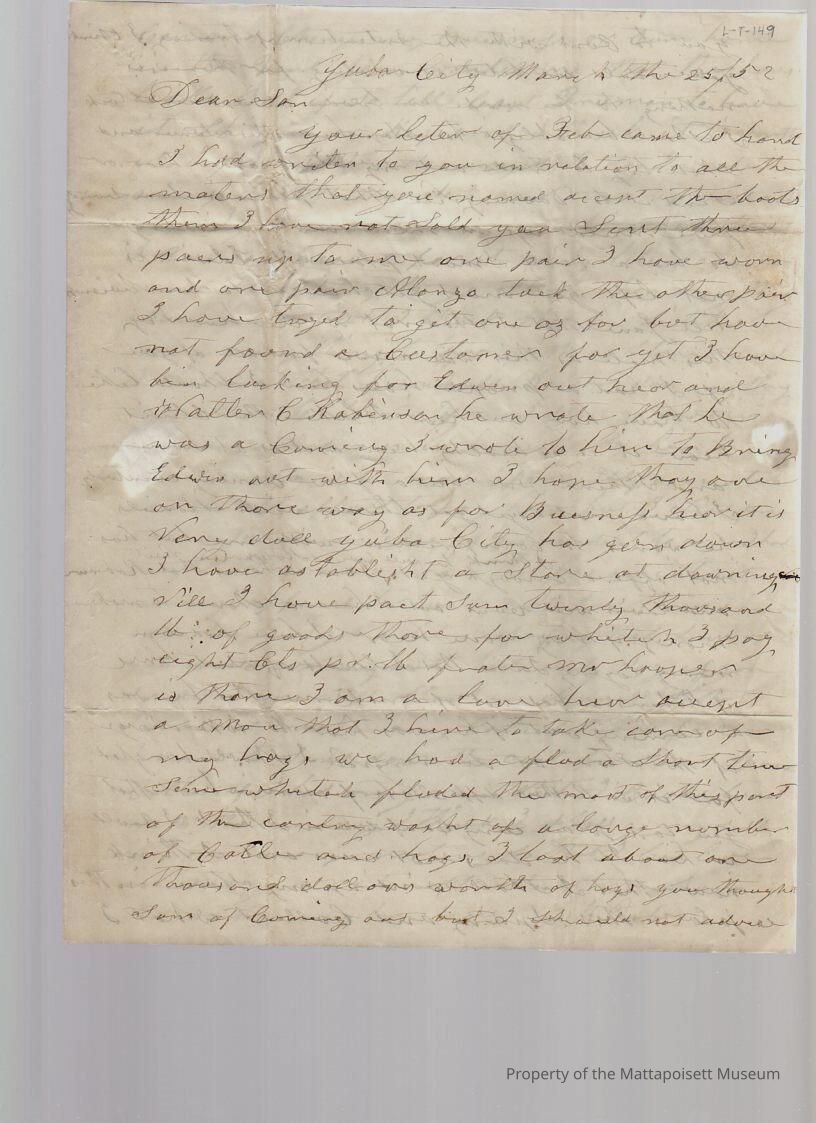 L-T-149
Yuba City March the 25/52
Dear Son
Your leter of Feb came to hand
I had writen to you in relation to all the
maters that you named accept the boots
them I have not Sold you Sent three
paers up to me one pair I have worn
and one pair Alonzo took the other pair
I have tryed to git one oz for but have
not found a Customer for yet I have
bin looking for Edwin out hear and
Walter C Robinson he wrote that he
was a Coming I wrote to him to Bring
Edwin out with him I hope thay are
on thare way as for Buesness hear it is
Very doll yuba City has gon down
I have astablisht a Store at downing
vill I have pact Sum twenty thousand
lb of goods thare for which I pay
eight Cts pr lb frate mr hooper
is thare I am a lone hear accept
a man that I hire to take care of
my hogs we had a flod a Short time
Sence which floded the most of this part
of the contry washt of a large number
of Catle and hogs I lost about one
thousand dollars worth of hogs you thought
Sum of Coming out but I should not advice
Property of the Mattapoisett Museum